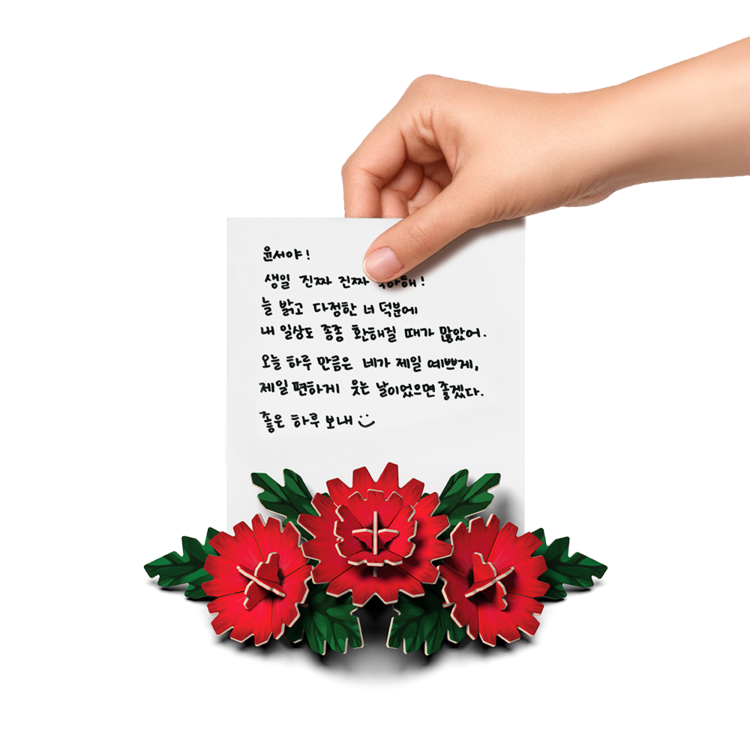 윤서야!
생일 진짜 진짜
늘 밝고 다정한 너 덕분에
내 일상도 종종 환해질 때가 많았어.
오늘 하루 만큼은 네가 제일 예쁘게,
제일 편하게 웃는 날이었으면 좋겠다.
좋은 하루 보내